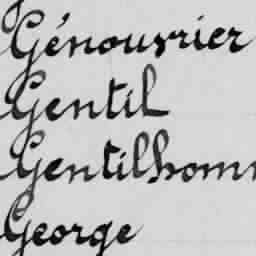 Génouvrier
Gentil
Gentilhomm
George